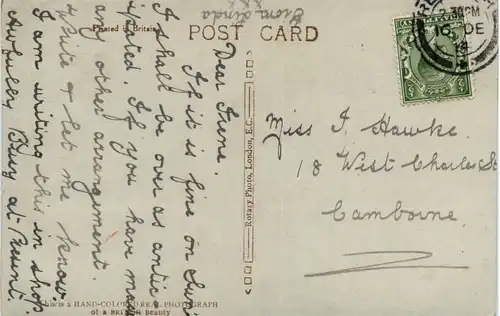 From Linda
Printed in Britain
POST CARD
Dear Irene.
If it is fine on Sun
I shall be over as antic
ipated. If you have ma
any other arrangement.
write & let me know.
I am writing this in shop
Awfully Busy at Present.
Miss I. Hawke.
18 West Charles St
Camborne
Rotary Photo, London, E.C.
This is a HAND-COLORED REAL PHOTOGRAPH
of a BRITISH Beauty
30PM
10 DE
14